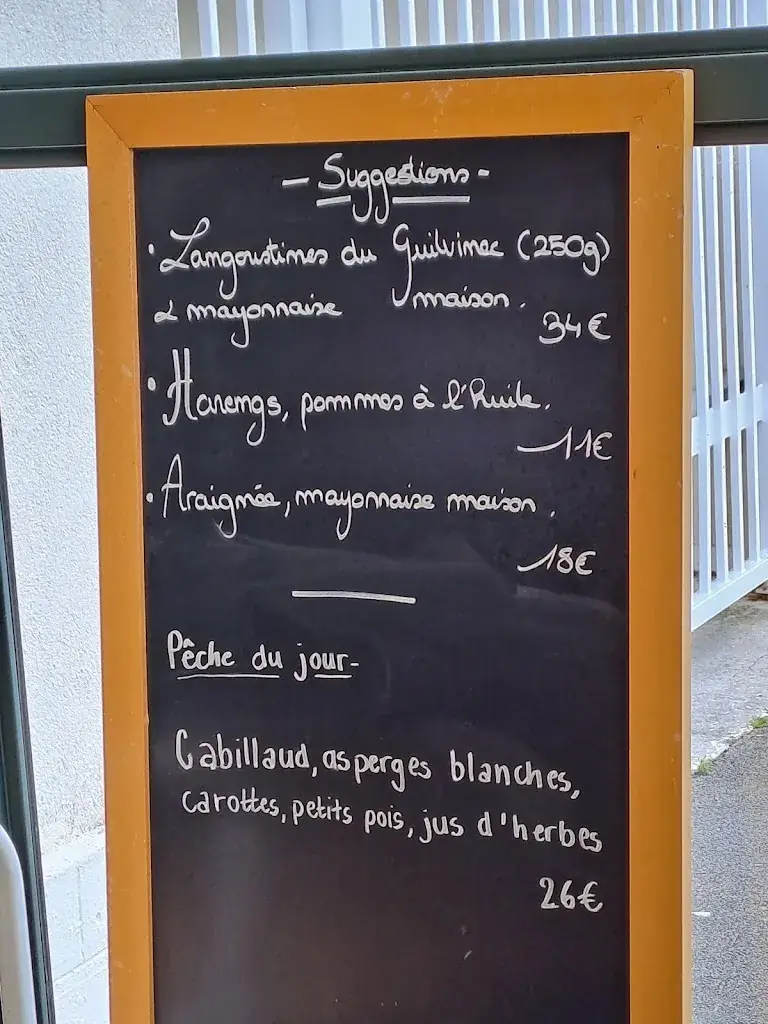 - Suggestions -
• Langoustines du Guilvinec (250g)
& mayonnaise maison.
34€
• Harengs, pommes à l'huile.
11€
• Araignée, mayonnaise maison.
18€
Pêche du jour-
Cabillaud, asperges blanches,
carottes, petits pois, jus d'herbes
26€